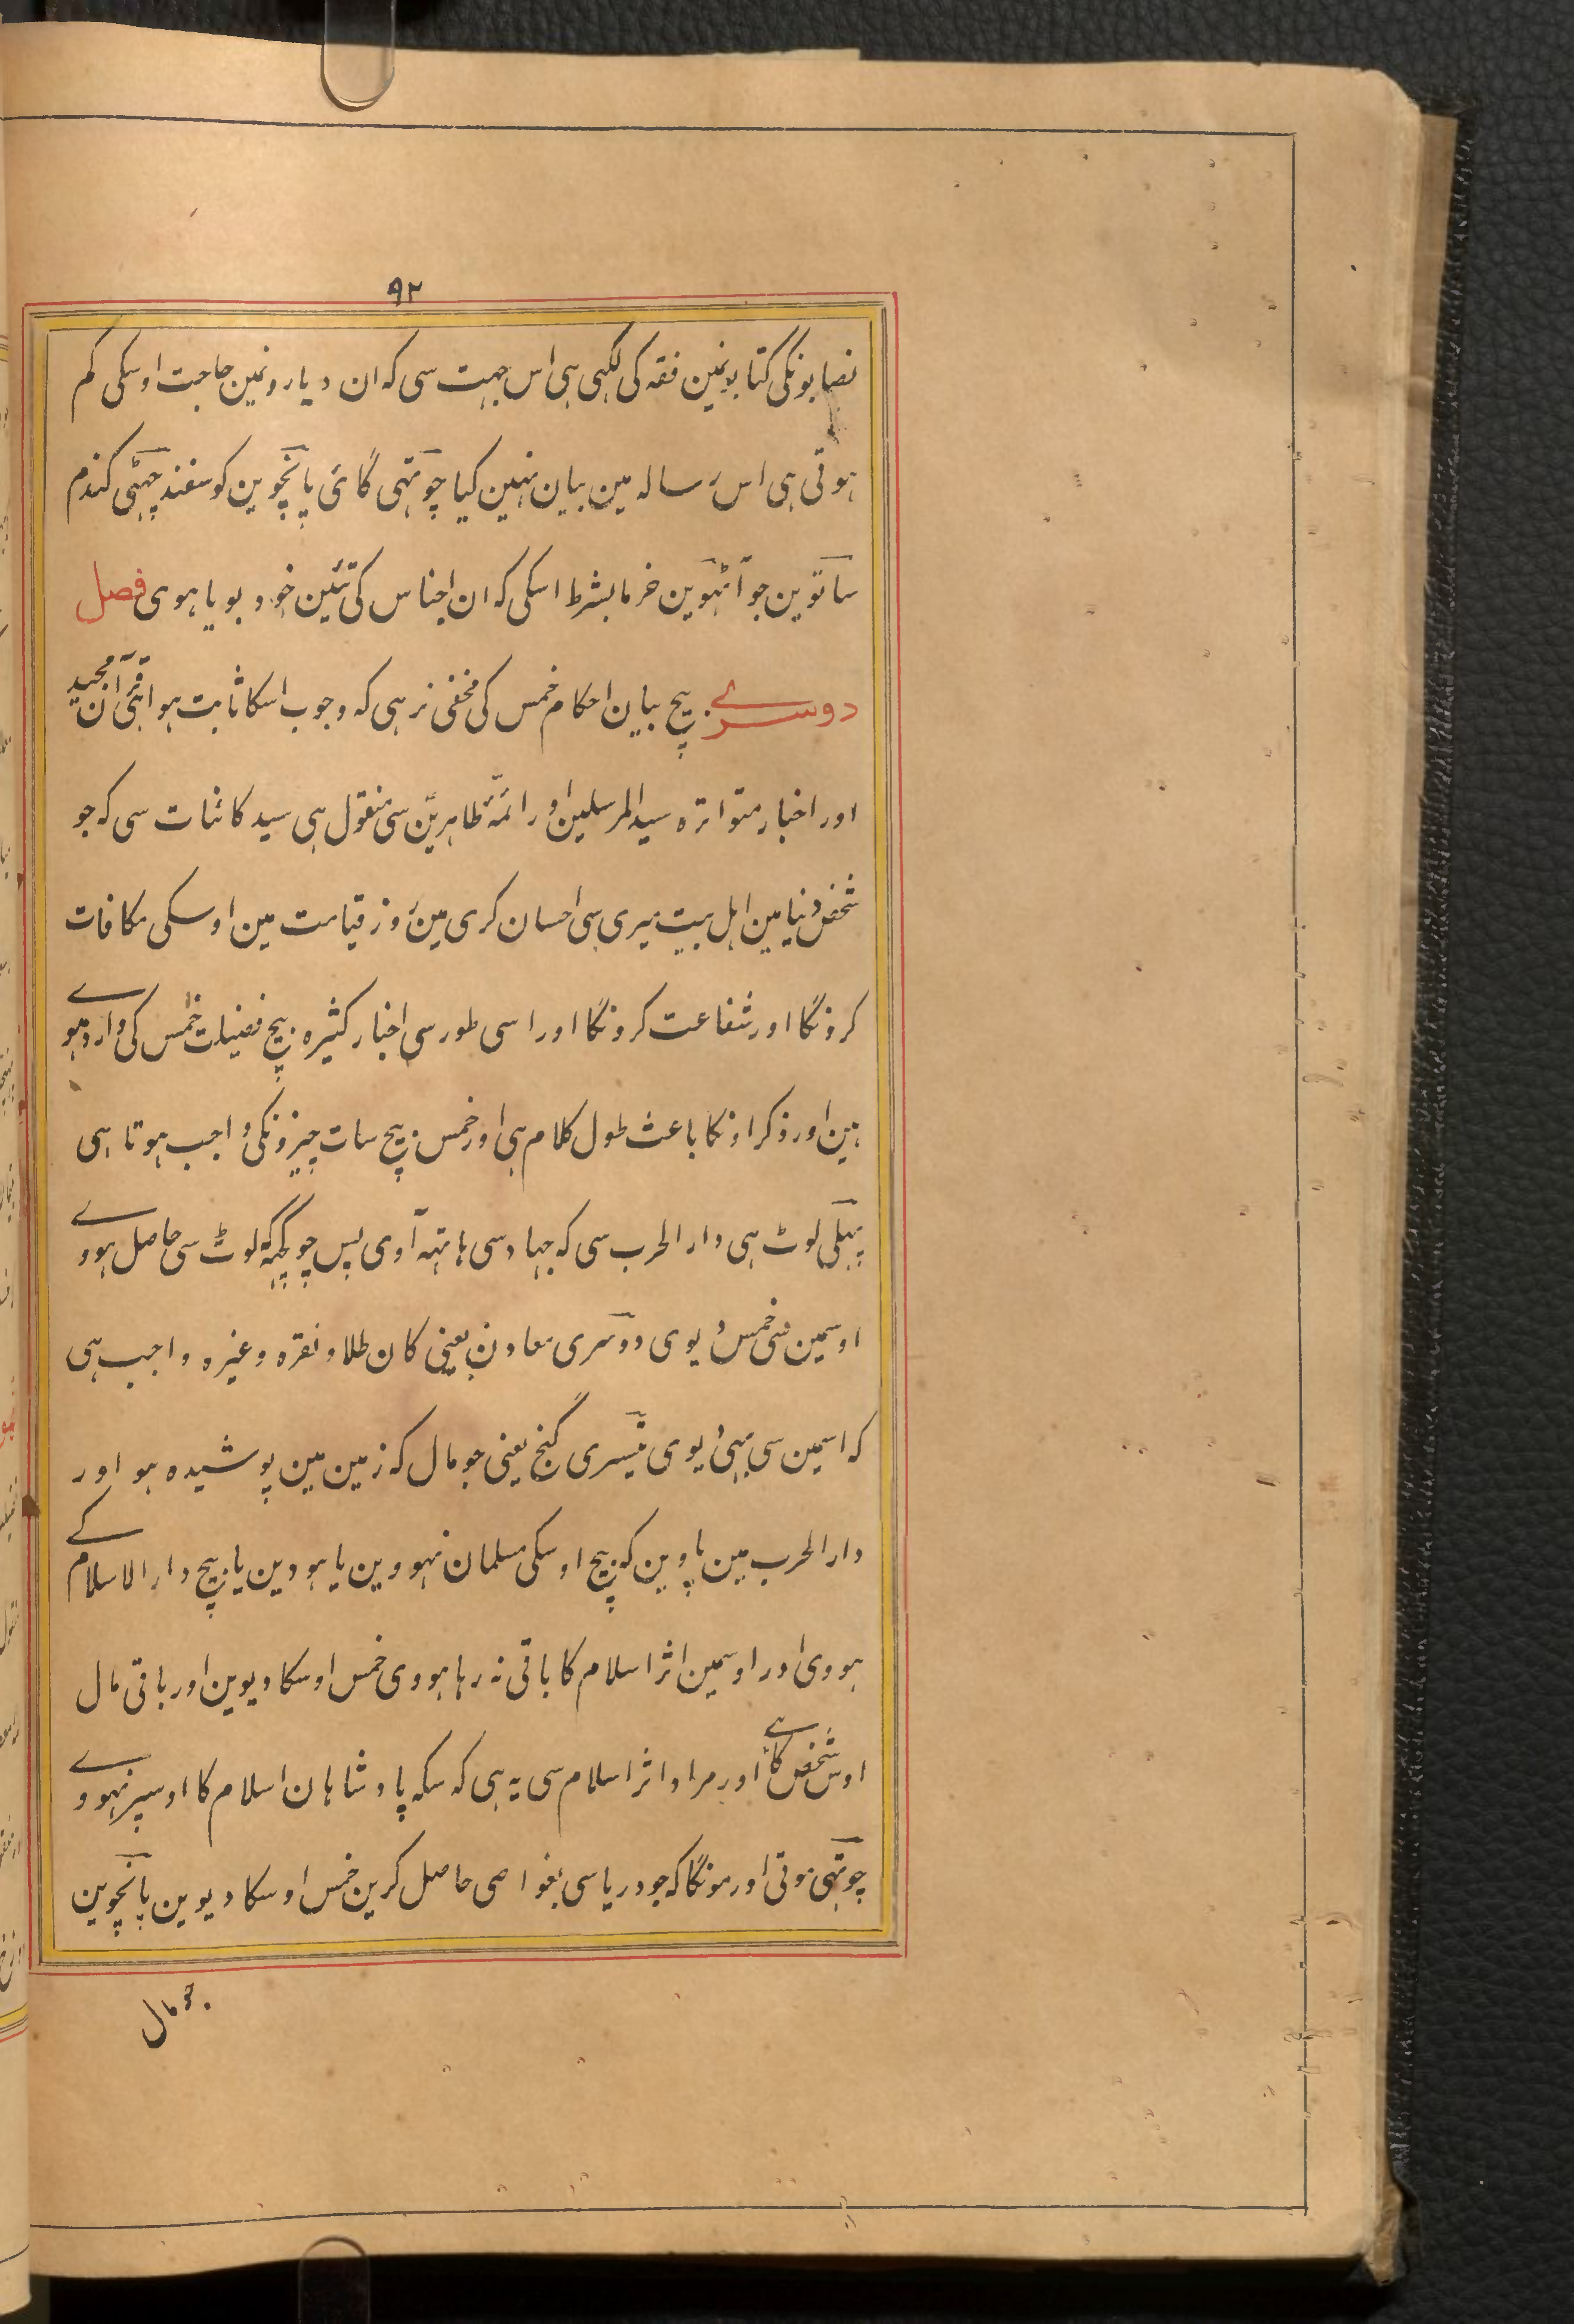 ٩٢
نصابونکی کتابونمین فقہ کی لکہی ہی اس جہت سی کہ ان دیارونمین حاجت اوسکی کم
ہوتی ہی اس رسالہ مین بیان نہین کیا چوتہی گائی پانچوین کوسفند چہٹی کندم
ساتوین جو آٹہوین خرما بشرط اسکی کہ ان اجناس کی تئین خود بویا ہوی فصل
دوسرے بیچ بیان احکام خمس کی مخفی نرہی کہ وجوب اسکا ثابت ہوا ہی قرآن مجید
اور اخبار متواترہ سید المرسلین اور ائمہ طاہرین سی منقول ہی سید کائنات سی کہ جو
شخص دنیا مین اہل بیت میری سی احسان کری مین روز قیامت مین اوسکی مکافات
کرونگا اور شفاعت کرونگا اور اسی طور سی اخبار کثیرہ بیچ فضیلت خمس کی وارد ہوے
ہین اور ذکر اونکا باعث طول کلام ہی اور خمس بیچ سات چیزونکی واجب ہوتا ہی
پہلی لوٹ ہی دار الحرب سی کہ جہاد سی ہاتہہ آوی پس جو کچہہ کہ لوٹ سی حاصل ہووے
اوسمین سی خمس دیوی دوسری معادن یعنی کان طلا و نقرہ وغیرہ واجب ہی
کہ اسمین سی بہی دیوی تیسری گنج یعنی جو مال کہ زمین مین پوشیدہ ہو اور
دار الحرب مین پاوین کہ بیچ اوسکی مسلمان نہووین یا ہووین یا بیچ دار الاسلام کے
ہووی اور اوسمین اثر اسلام کا باقی نہ رہا ہووی خمس اوسکا دیوین اور باقی مال
اوس شخص کا ہے اور مراد اثر اسلام سی یہ ہی کہ سکہ پادشاہان اسلام کا اوسپر نہووے
چوتہی موتی اور مونگا کہ جو دریا سی بغواصی حاصل کرین خمس اوسکا دیوین پانچوین
جو مال